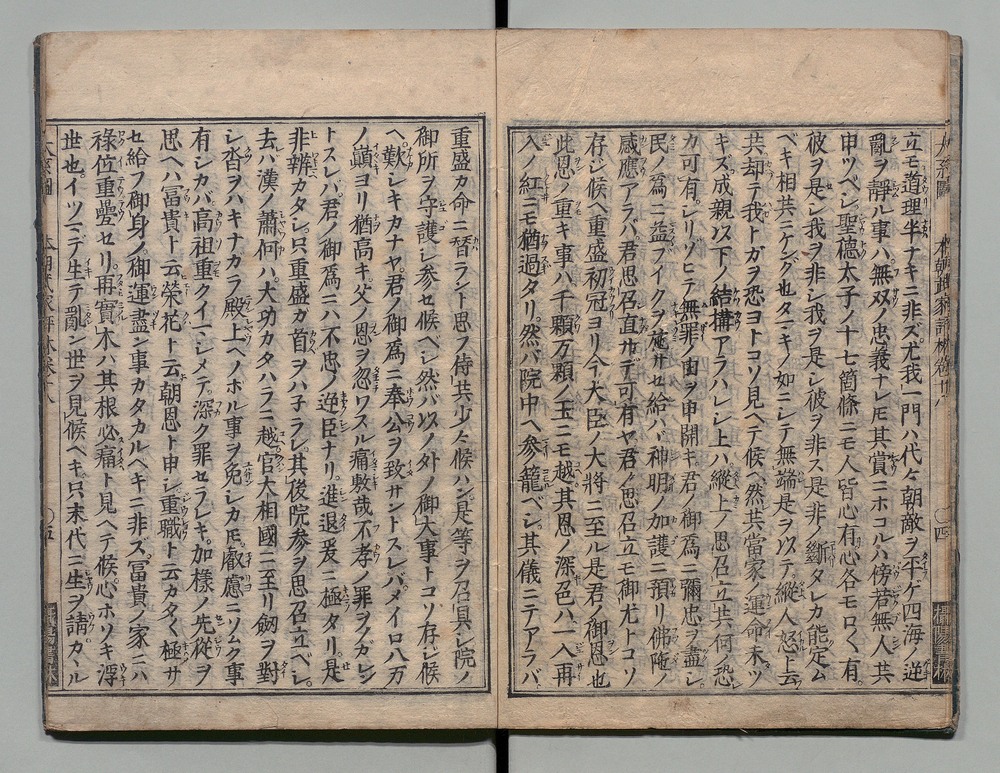 立モ道理半ナキニ非ズ尤我一門ハ代々朝敵ヲ平ゲ四海ノ逆
亂ヲ靜ル事ハ無双ノ忠義ナレ𪜈其賞ニホコルハ傍若無人共
申ツベシ聖德太子ノ十七箇條ニモ人皆心有心各モロく有
彼ヲ是シ我ヲ非シ我ヲ是シ彼ヲ非ス是非ノ斷タレカ能定ム
ベキ相共ニケンゲ也タマキノ如ニシテ無端是ヲ以テ縱人怒上云
共却テ我トガヲ恐ヨトコソ見ヘテ候ヘ然共當家ノ運命未ツ
キズ成親以下ノ結搆アラハレシ上ハ縱上ノ思召立共何ノ恐
カ可有シリゾヒテ無罪ノ由ヲ申開キ君ノ御爲ニ彌忠ヲ盡シ
民ノ爲ニ益ブイクヲ施サセ給ハヾ神明ノ加護ニ預リ佛陁ノ
感應アラバ君思召直サデ可有ヤ君ノ思召立モ御尤トコソ
存シ候ヘ重盛初冠ヨリ今大臣ノ大將ニ至ル是君ノ御恩也
此恩ノ重キ事ハ千顆万顆ノ玉ニモ越其恩ノ深色ハ一入再
入ノ紅ニモ猶過タリ然バ院中ヘ參籠ベシ其儀ニテアラバ
重盛カ命ニ替ラント思フ侍共少々候ハン是等ヲ召具シ院ノ
御所ヲ守護シ參セ候ベシ然バ以ノ外ノ御大事トコソ存シ候
ヘ歎シキカナヤ君ノ御爲ニ奉公ヲ致サントスレバメイロ八万
ノ巓ヨリ猶高キ父ノ恩ヲ忽ワスル痛敷哉不孝ノ罪ヲノガレン
トスレバ君ノ御爲ニハ不忠ノ逆臣ナリ進退爰ニ極タリ是
非辨カタシ只重盛ガ首ヲハ子ラレ其後院參ヲ思召立ベシ
去バ漢ノ蕭何ハ大功カタハラニ越官大相國ニ至リ劔ヲ對
シ沓ヲハキナガラ殿上ヘノホル事ヲ免シカ𪜈叡慮ニソムク事
有シカバ高祖重クイマシメテ深ク罪セラレキ加樣ノ先從ヲ
思ヘハ冨貴ト云榮花ト云朝恩ト申シ重職ト云カタく極サ
セ給フ御身ノ御運盡ン事カタカルヘキニ非ズ冨貴ノ家ニハ
祿位重疊セリ再實木ハ其根必痛ト見ヘテ候心ホソキ浮
世也イツマデ生テ亂ン世ヲ見候ベキ只末代ニ生ヲ請カヽル